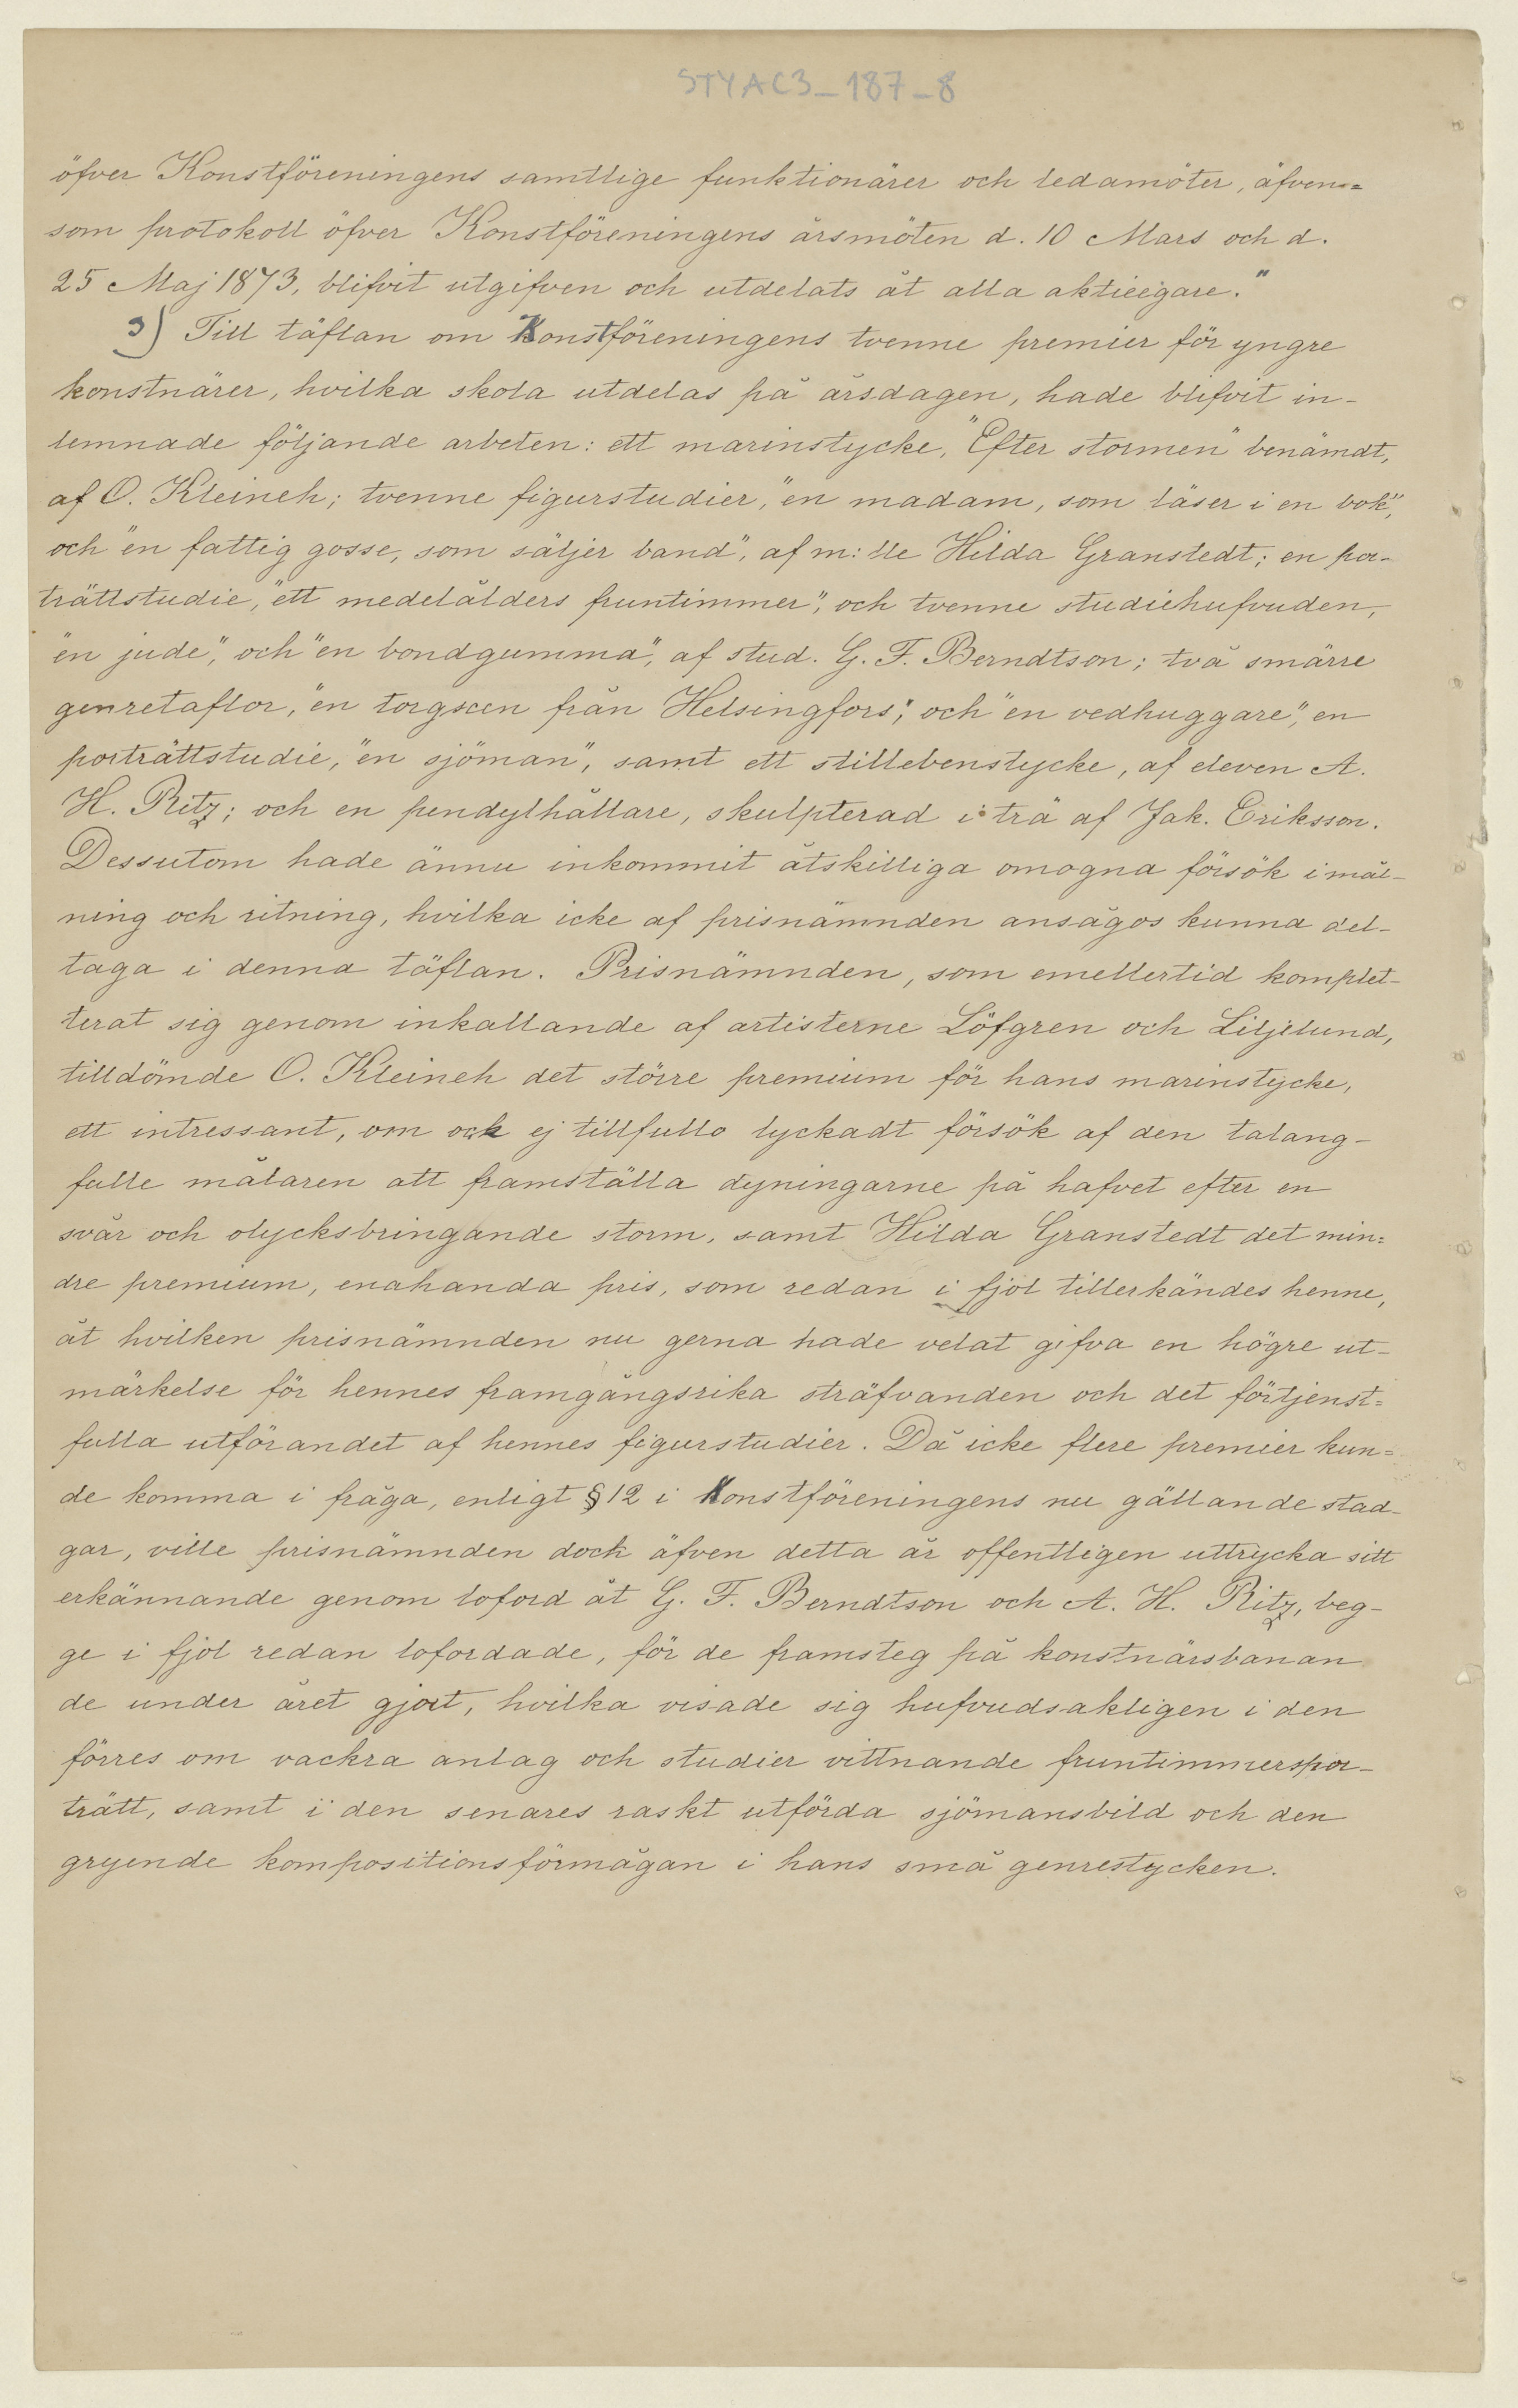 STYAC3_187_8
öfver Konstföreningens samtlige funktionärer och ledamöter, äfven=
som protokoll öfver Konstföreningens årsmöten d. 10 Mars och d.
25 Maj 1873, blifvit utgifven och utdelats åt alla aktieegare."
3) Till täflan om Konstföreningens tvenne premier för yngre
konstnärer, hvilka skola utdelas på årsdagen, hade blifvit in-
lemnade följande arbeten: ett marinstycke, "Efter stormen" benämdt,
af O. Kleineh; tvenne figurstudier, "en madam, som läser i en bok",
och "en fattig gosse, som säljer band", af m:lle Hilda Granstedt; en por-
trättstudie, "ett medelålders fruntimmer", och tvenne studiehufvuden,
"en jude", och "en bondgumma", af stud. G. F. Berndtson; två smärre
genretaflor, "en torgscen från Helsingfors", och "en vedhuggare", en
porträttstudie, "en sjöman", samt ett stillebenstycke, af eleven A.
H. Ritz; och en pendylhållare, skulpterad i trä af Jak. Eriksson.
Dessutom hade ännu inkommit åtskilliga omogna försök i mål-
ning och ritning, hvilka icke af prisnämnden ansågos kunna del-
taga i denna täflan. Prisnämnden, som emellertid komplet-
terat sig genom inkallande af artisterne Löfgren och Liljelund,
tilldömde O. Kleineh det större premium för hans marinstycke,
ett intressant, om ock ej tillfullo lyckadt försök af den talang-
fulle målaren att framställa dyningarne på hafvet efter en
svår och olycksbringande storm, samt Hilda Granstedt det min=
dre premium, enahanda pris, som redan i fjol tillerkändes henne,
åt hvilken prisnämnden nu gerna hade velat gifva en högre ut-
märkelse för hennes framgångsrika sträfvanden och det förtjenst=
fulla utförandet af hennes figurstudier. Då icke flere premier kun=
de komma i fråga, enligt § 12 i Konstföreningens nu gällande stad-
gar, ville prisnämnden dock äfven detta år offentligen uttrycka sitt
erkännande genom loford åt G. F. Berndtson och A. H. Ritz, beg-
ge i fjol redan lofordade, för de framsteg på konstnärsbanan
de under året gjort, hvilka visade sig hufvudsakligen i den
förres om vackra anlag och studier vittnande fruntimmerspor-
trätt, samt i den senares raskt utförda sjömansbild och den
gryende kompositionsförmågan i hans små genrestycken.